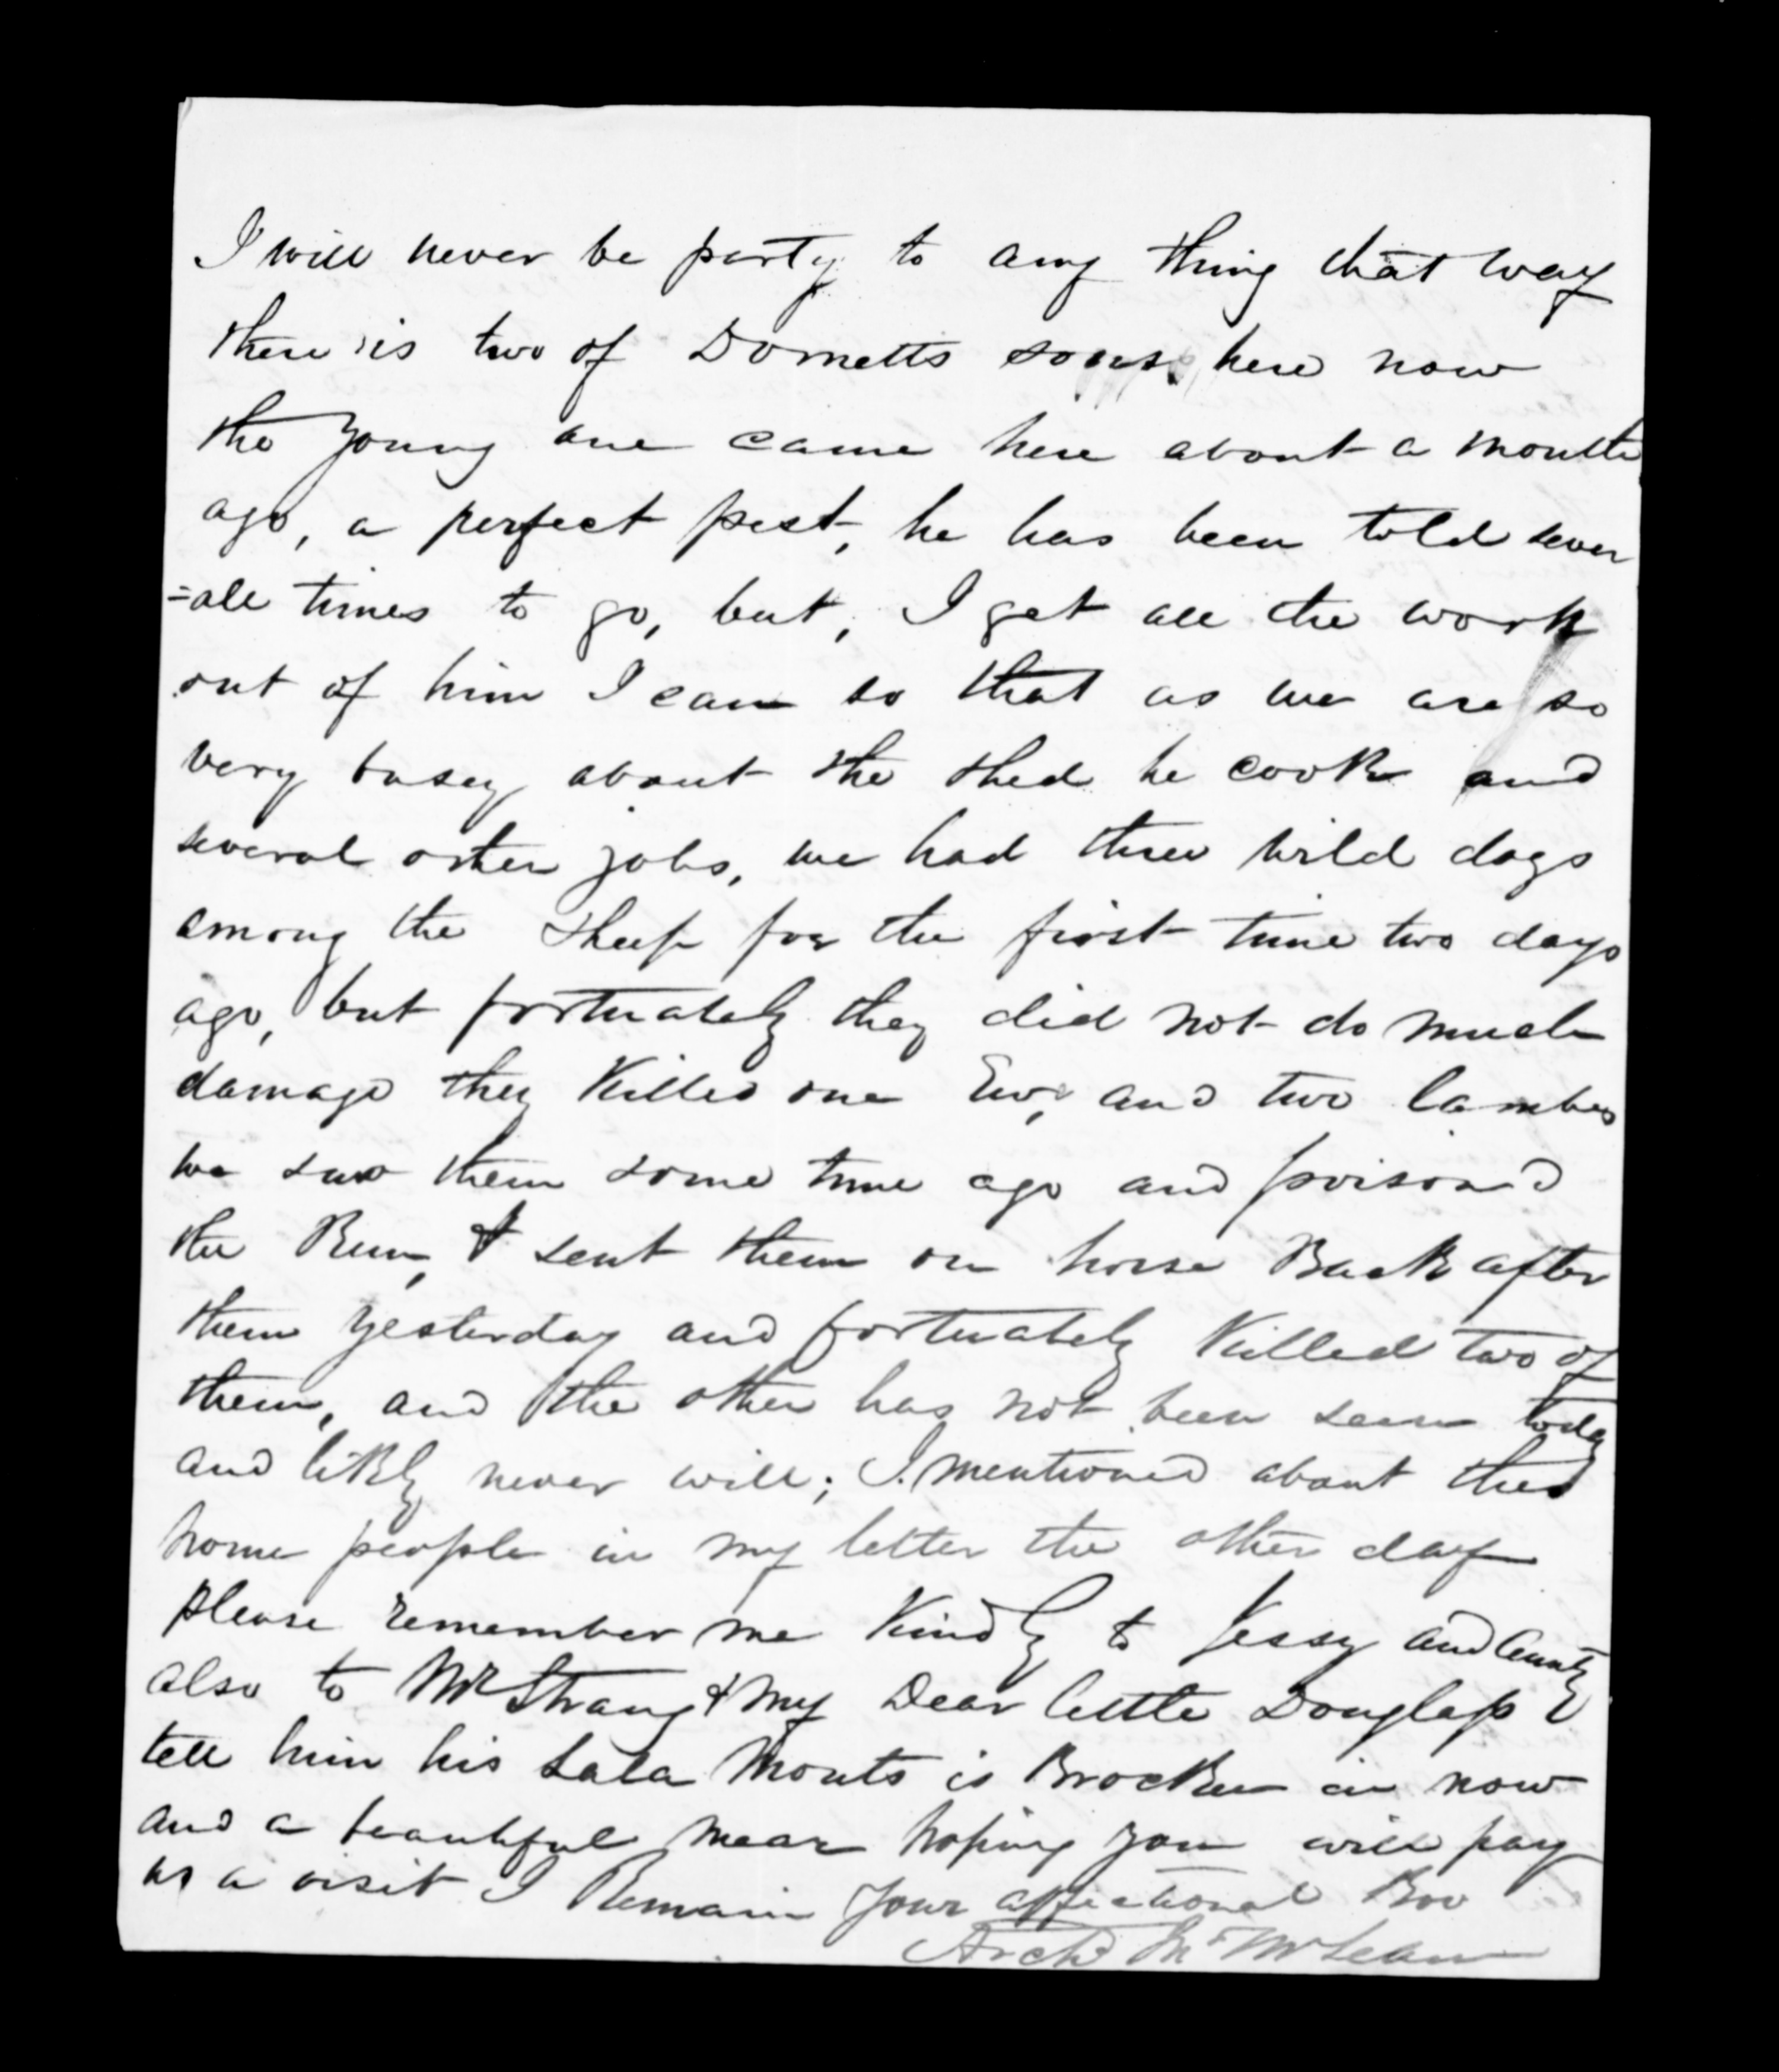 I will never be party to any thing that way
there is two of Dometts sons here now
the young one came here about a month
ago, a perfect pest, he has been told sever
=ale times to go, but, I get all the work
out of him I can so that as we are so
very busey about the shed he cook and
several other jobs, we had three wild dogs
among the sheep for the first time two days
ago, but fortuately they did not do much
damage they Killed one Ewe, and two lambes
we saw them some time ago and poisoned
the Run, & sent them on horse Back after
them yesterday and fortuately Killed two of
them, and the other has not been seen today
and likly never will; I mentioned about the
home people in my letter the other day
please remember me Kindly to Jessy and Aunty
also to Mr Strang & my Dear little Douglass
tell him his Lala Monts is Brocken in now
and a beautiful mear hoping you will pay
us a visit I Remain your affectional Bro
Archd Mc McLean